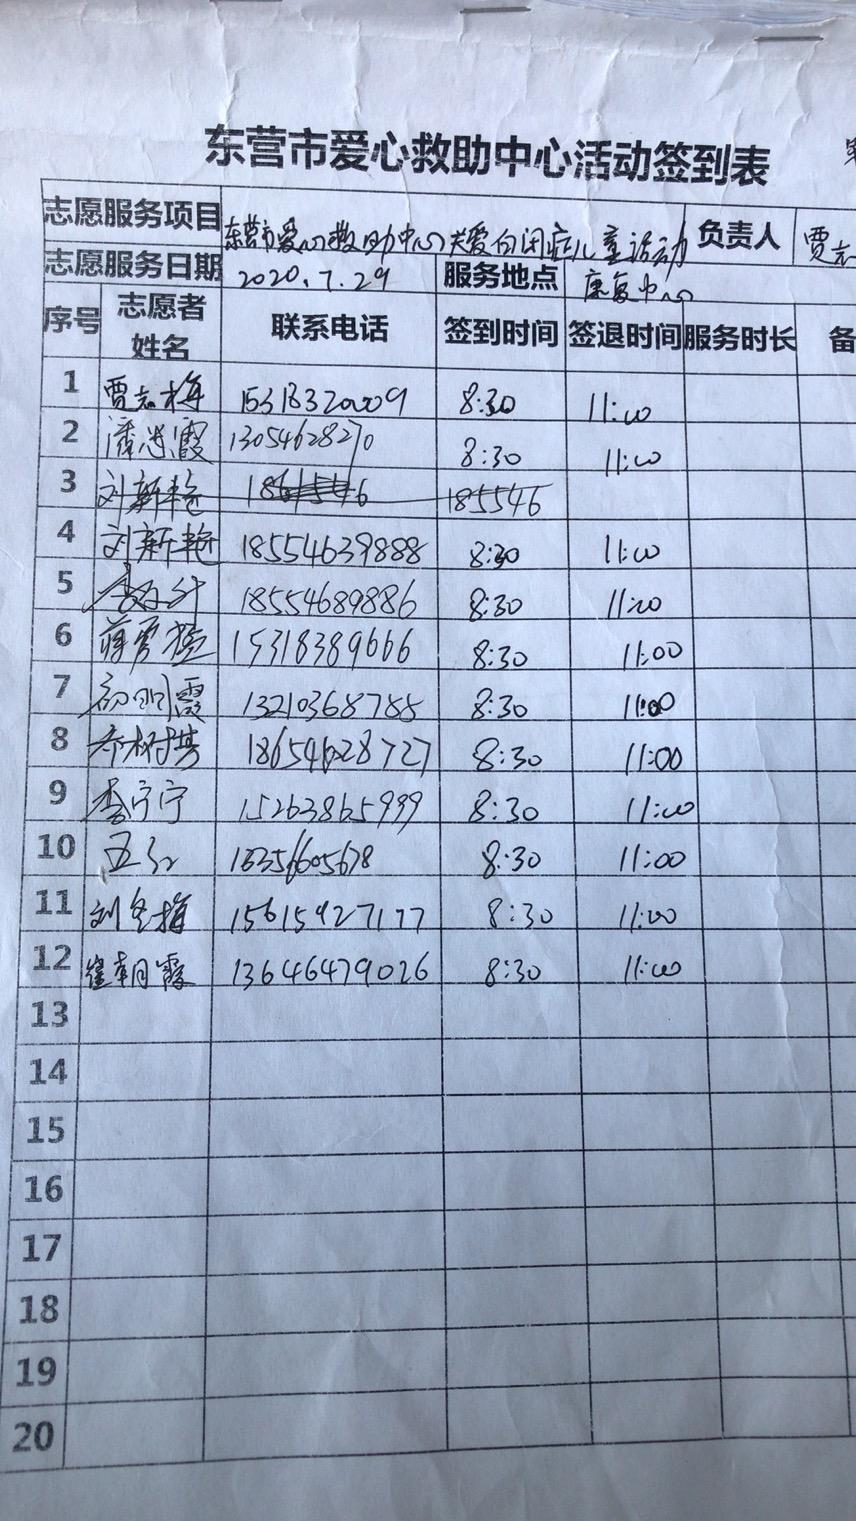 东营市爱心救助中心活动签到表
志愿服务项目 东营市爱心救助中心关爱自闭症儿童活动 负责人 贾志
志愿服务日期 2020.7.29 服务地点 康复中心
序号 志愿者姓名 联系电话 签到时间 签退时间 服务时长 备
1 贾志梅 15318320009 8:30 11:00
2 潘洪霞 13054628270 8:30 11:00
3 刘新艳 185546
4 刘新艳 18554639888 8:30 11:00
5 18554689886 8:30 11:00
6 15318389666 8:30 11:00
7 初明霞 13210368785 8:30 11:00
8 乔树芳 18654628727 8:30 11:00
9 李宁宁 15263865999 8:30 11:00
10 8:30 11:00
11 刘冬梅 15615927177 8:30 11:00
12 崔朝霞 13646479026 8:30 11:00
13
14
15
16
17
18
19
20